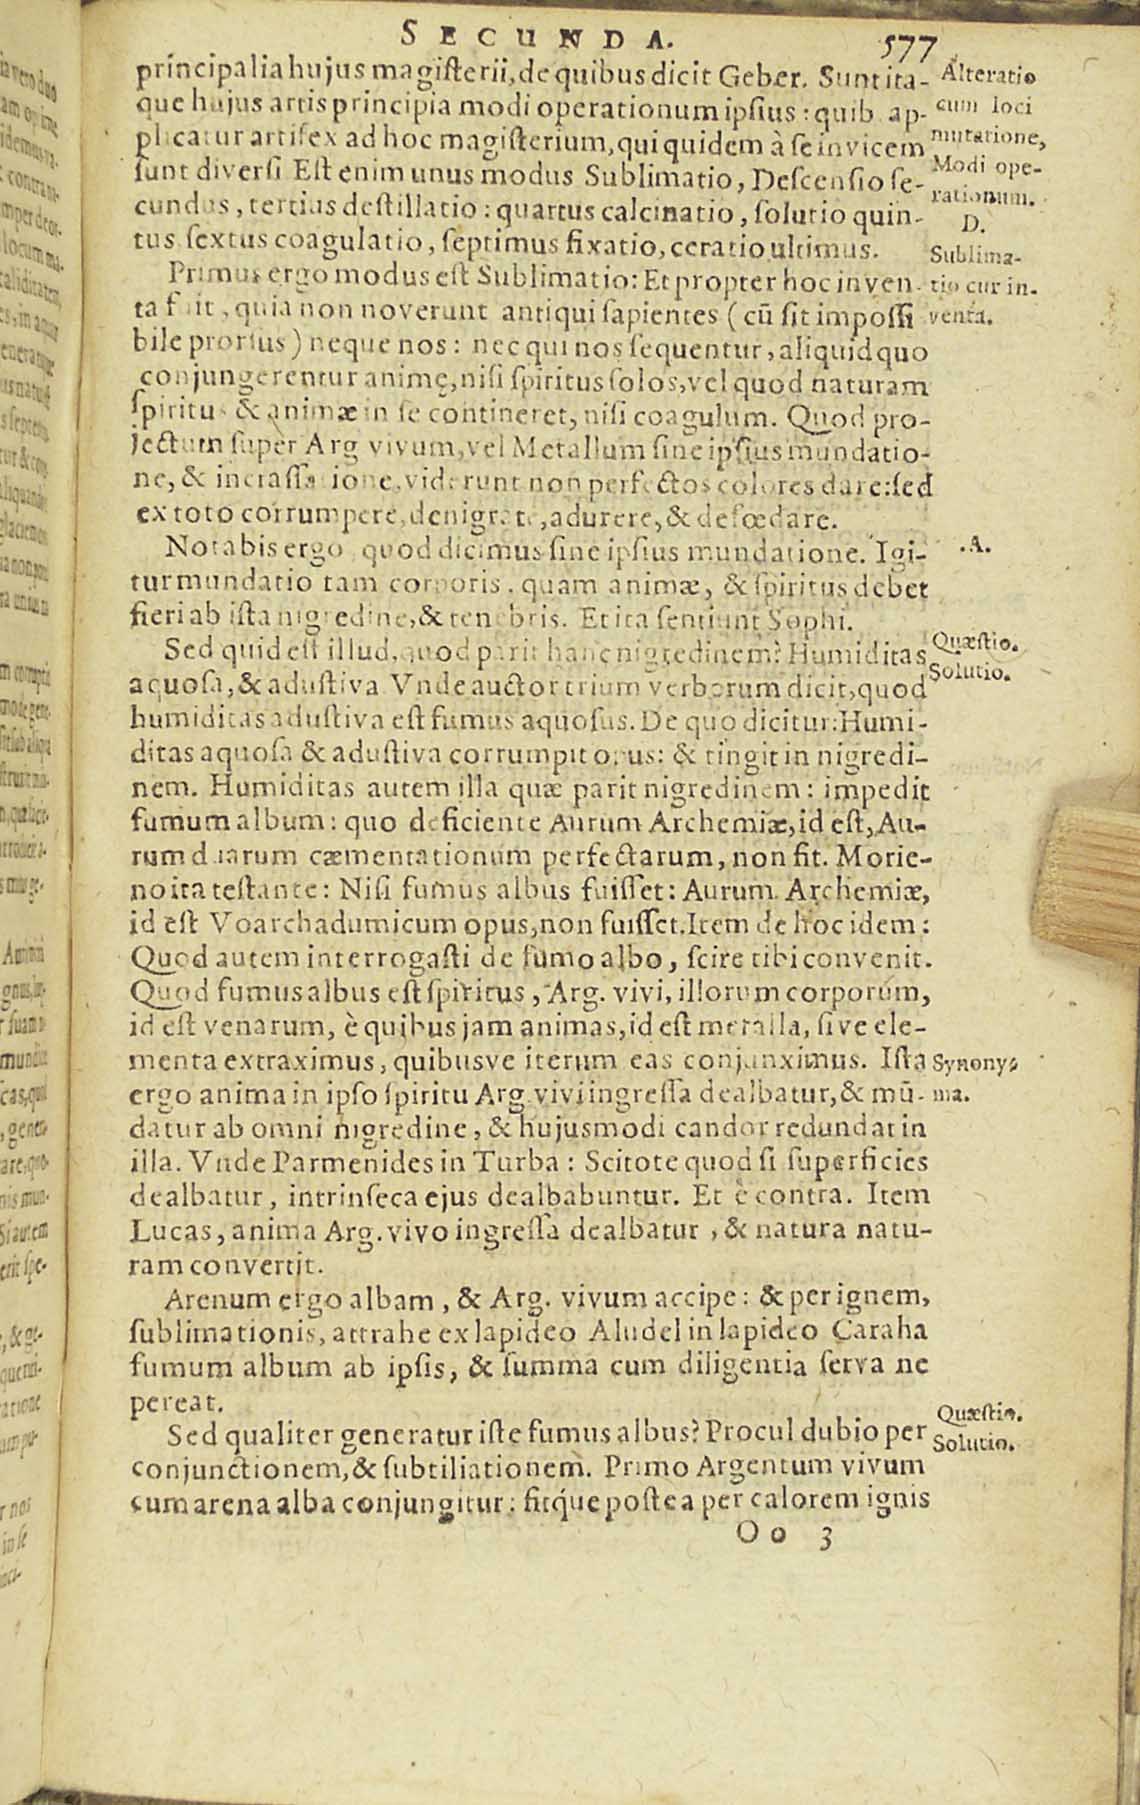 SECUNDA.
577
principalia hujus magisterii, de quibus dicit Geber. Sunt ita-
que hujus artis principia modi operationum ipsius: quib. ap-
plicatur artifex ad hoc magisterium, qui quidem à se invicem
sunt diversi Est enim unus modus Sublimatio, Descensio se-
cundus, tertius destillatio: quartus calcinatio, solutio quin-
tus sextus coagulatio, septimus fixatio, ceratio ultimus.
Primus ergo modus est Sublimatio: Et propter hoc inven-
ta fuit, quia non noverunt antiqui sapientes (cū sit impossi
bile prorsus) neque nos: nec qui nos sequentur, aliquid quo
conjungerentur animę, nisi spiritus solos, vel quod naturam
spiritus & animæ in se contineret, nisi coagulum. Quod pro-
jectum supèr Arg vivum, vel Metallum sine ipsius mundatio-
ne, & incrassatione, viderunt non perfectos colores dare: sed
ex toto corrumpere, denigrare, adurere, & defœdare.
Notabis ergo quod dicimus sine ipsius mundatione. Igi-
tur mundatio tam corporis. quam animæ, & spiritus debet
fieri ab ista nigredine, & tenebris. Et ita sentiunt Sophi.
Sed quid est illud, quod parit hanc nigredinem? Humiditas
aquosa, & adustiva Vnde auctor trium verborum dicit, quod
humiditas adustiva est fumus aquosus. De quo dicitur: Humi-
ditas aquosa & adustiva corrumpit opus: & tingit in nigredi-
nem. Humiditas autem illa quæ parit nigredinem: impedit
fumum album: quo deficiente Aurum Archemiæ, id est, Au-
rum duarum cæmentationum perfectarum, non fit. Morie-
no ita testante: Nisi fumus albus fuisset: Aurum Archemiæ,
id est Voarchadumicum opus, non fuisset. Item de hoc idem:
Quod autem interrogasti de fumo albo, scire tibi convenit.
Quod fumus albus est spiritus, Arg. vivi, illorum corporum,
id est venarum, è quibus jam animas, id est metalla, sive ele-
menta extraximus, quibusve iterum eas conjunximus. Ista
ergo anima in ipso spiritu Arg. vivi ingressa dealbatur, & mū-
datur ab omni nigredine, & hujusmodi candor redundat in
illa. Vnde Parmenides in Turba: Scitote quod si superficies
dealbatur, intrinseca ejus dealbabuntur. Et è contra. Item
Lucas, anima Arg. vivo ingressa dealbatur, & natura natu-
ram convertit.
Arenum ergo albam, & Arg. vivum accipe: & per ignem,
sublimationis, attrahe ex lapideo Aludel in lapideo Caraha
fumum album ab ipsis, & summa cum diligentia serva ne
pereat.
Sed qualiter generatur iste fumus albus? Procul dubio per
conjunctionem, & subtiliationem. Primo Argentum vivum
cum arena alba conjungitur: fitq́ue postea per calorem ignis
Oo 3
Alteratio
cum loci
mutatione,
Modi ope-
rationum.
D.
Sublima-
tio cur in-
venta.
.A.
Quæstio.
Solutio.
Synony-
ma.
Quæstio.
Solutio.